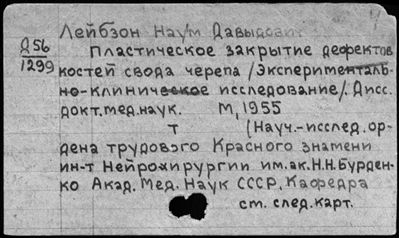 Лейбзон Наум Давыдович
Д56
1299
Пластическое закрытие дефектов
костей свода черепа /Эксперименталь-
но-клиническое исследование/. Дисс.
докт.мед.наук. М, 1955
т (Науч.-исслед.ор-
дена трудового Красного знамени
ин-т Нейрохирургии им.ак.Н.Н.Бурден-
ко Акад. Мед. Наук СССР, Кафедра
ст. след.карт.